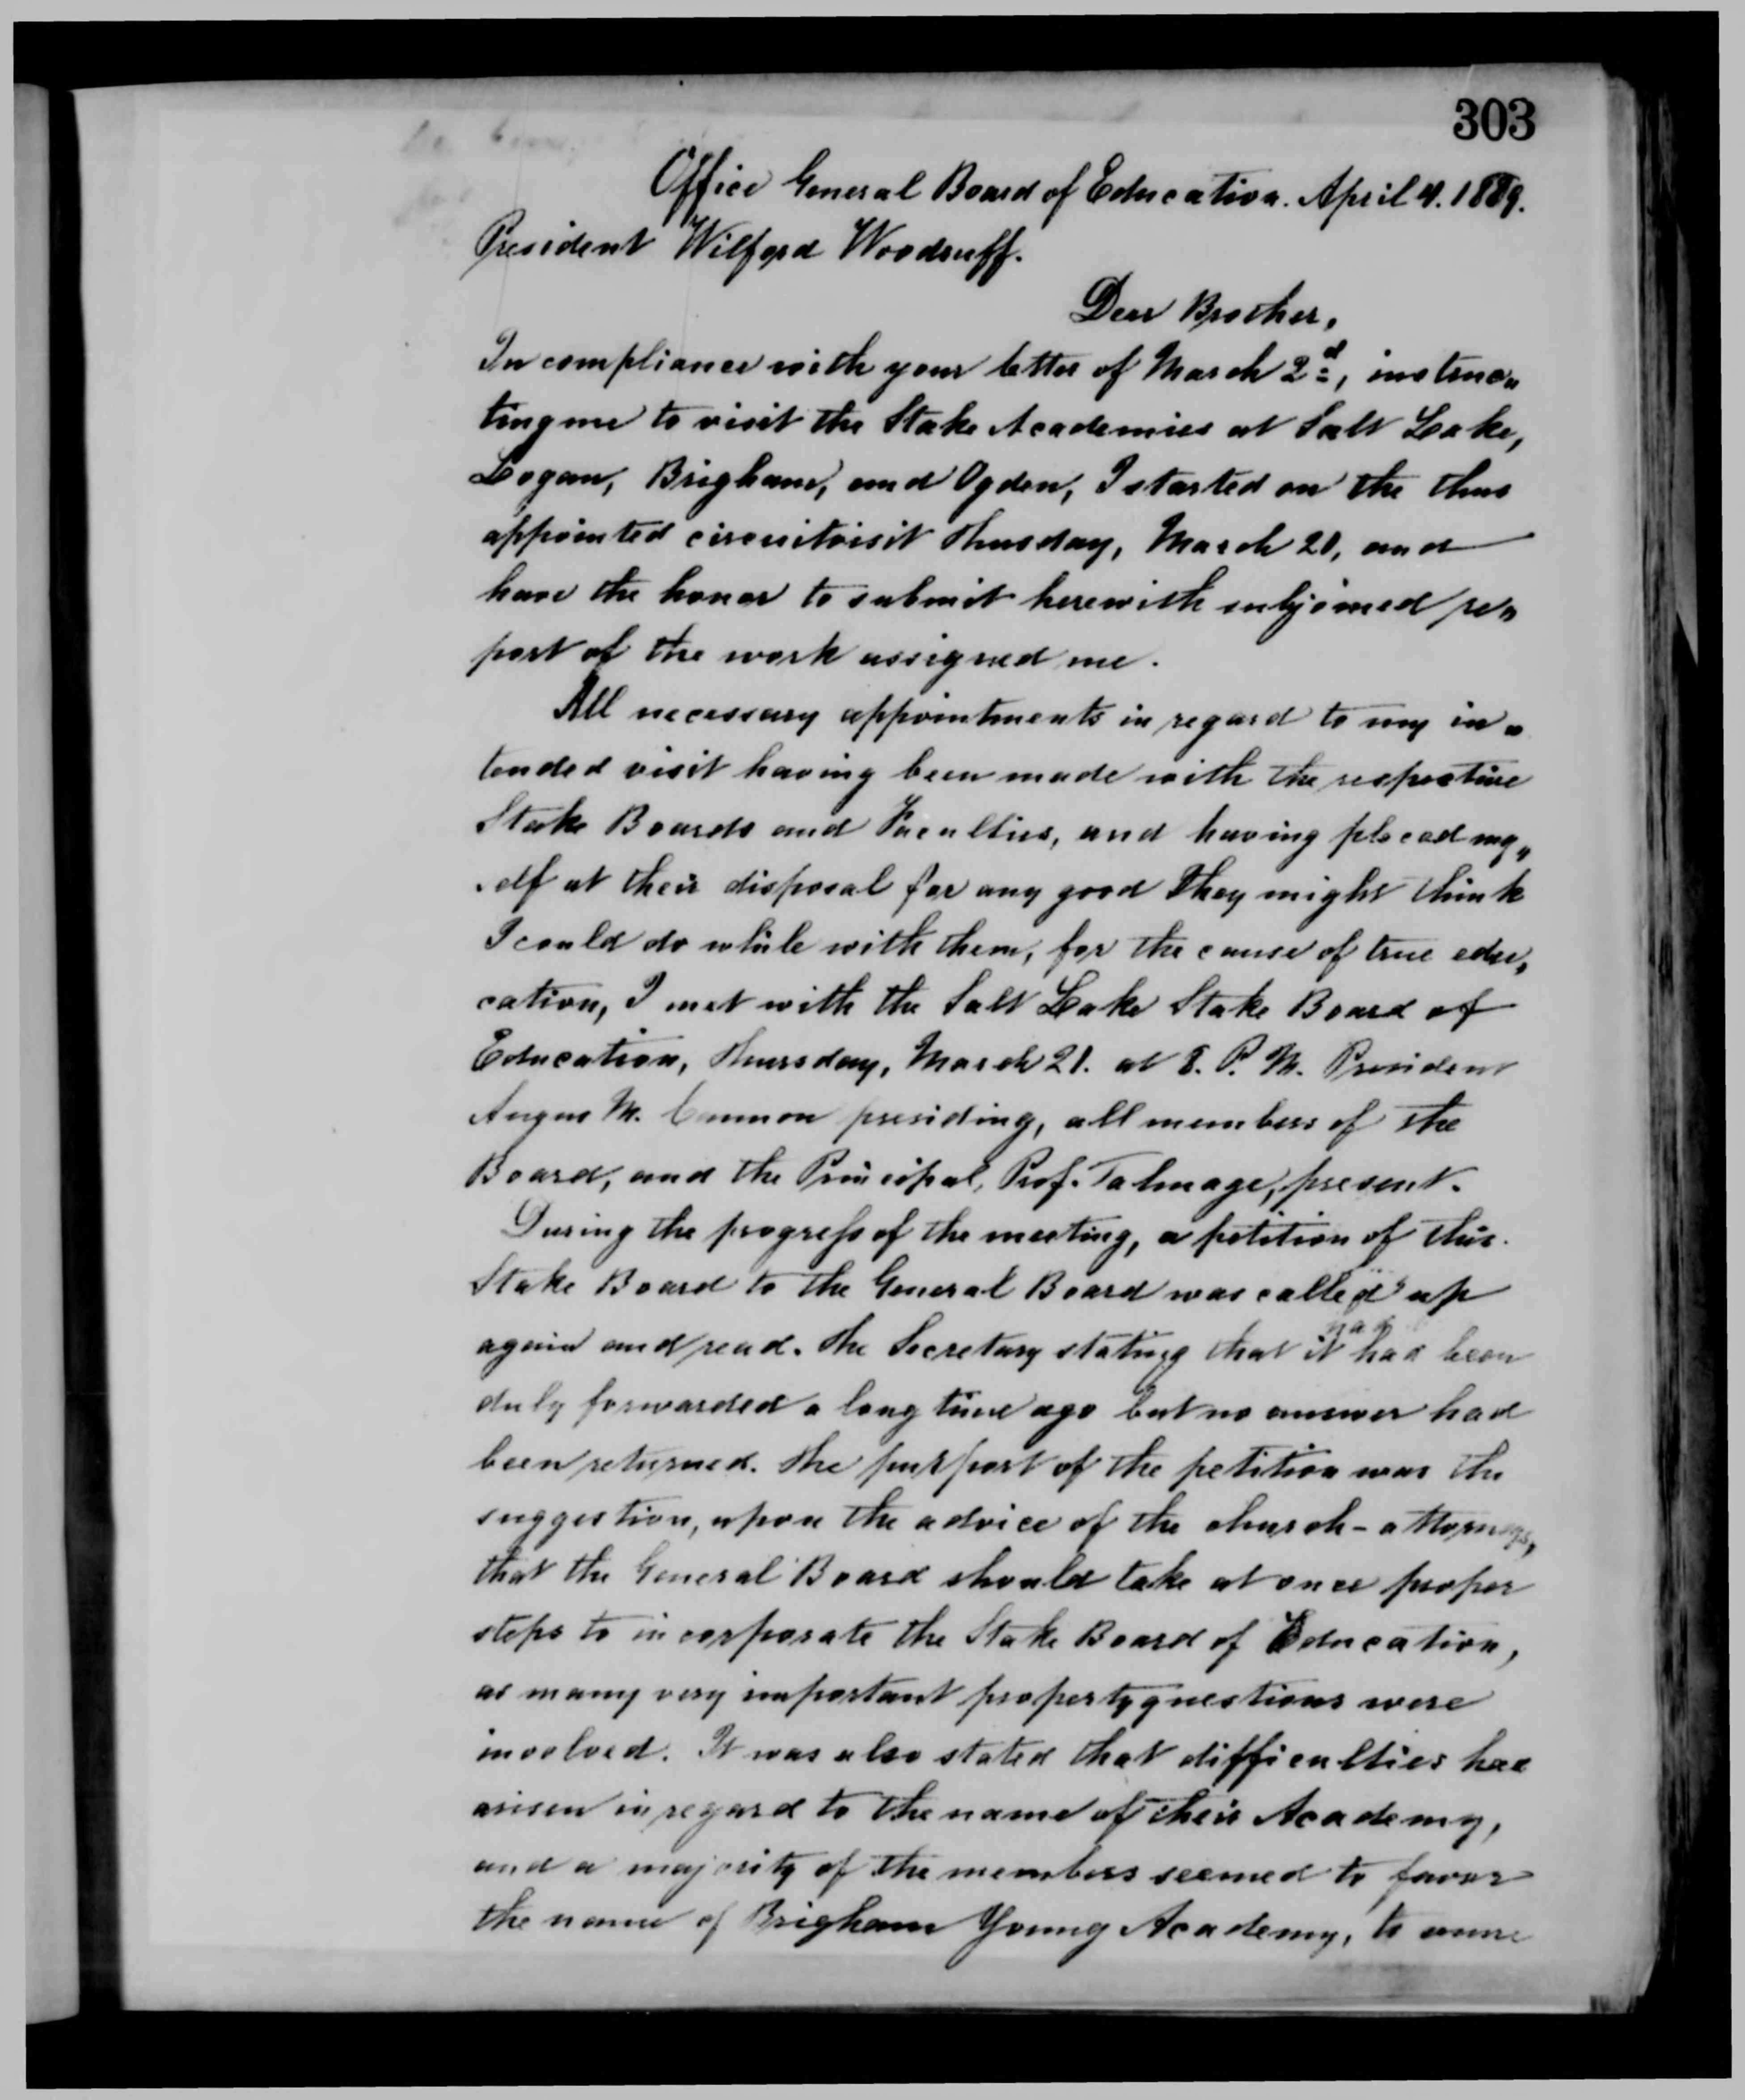 303
Office General Board of Education. April 4. 1889.
President Wilford Woodruff.
Dear Brother,
In compliance with your letter of March 2d, instruc„
ting me to visit the Stake Academies at Salt Lake,
Logan, Brigham, and Ogden, I started on the thus
appointed circuitvisit Thusday, March 21, and
have the honor to submit herewith subjoined re„
port of the work assigned me.
All necessary appointments in regard to my in„
tended visit having been made with the respective
Stake Boards and Faculties, and having placed my„
self at their disposal for any good they might think
I could do while with them, for the cause of true edu„
cation, I met with the Salt Lake Stake Board of
Education, Thursday, March 21. at 8. P. M. President
Angus M. Cannon presiding, all members of the
Board, and the Principal, Prof. Talmage, present.
During the progress of the meeting, a petition of this
Stake Board to the General Board was called up
again and read. The Secretary stating that it had been
duly forwarded a long time ago but no answer had
been returned. The purport of the petition was the
suggestion, upon the advice of the church-attorneys,
that the General Board should take at once proper
steps to incorporate the Stake Board of Education,
as many very important property questions were
involved. It was also stated that difficulties had
arisen in regard to the name of their Academy,
and a majority of the members seemed to favor
the name of Brigham Young Academy, to